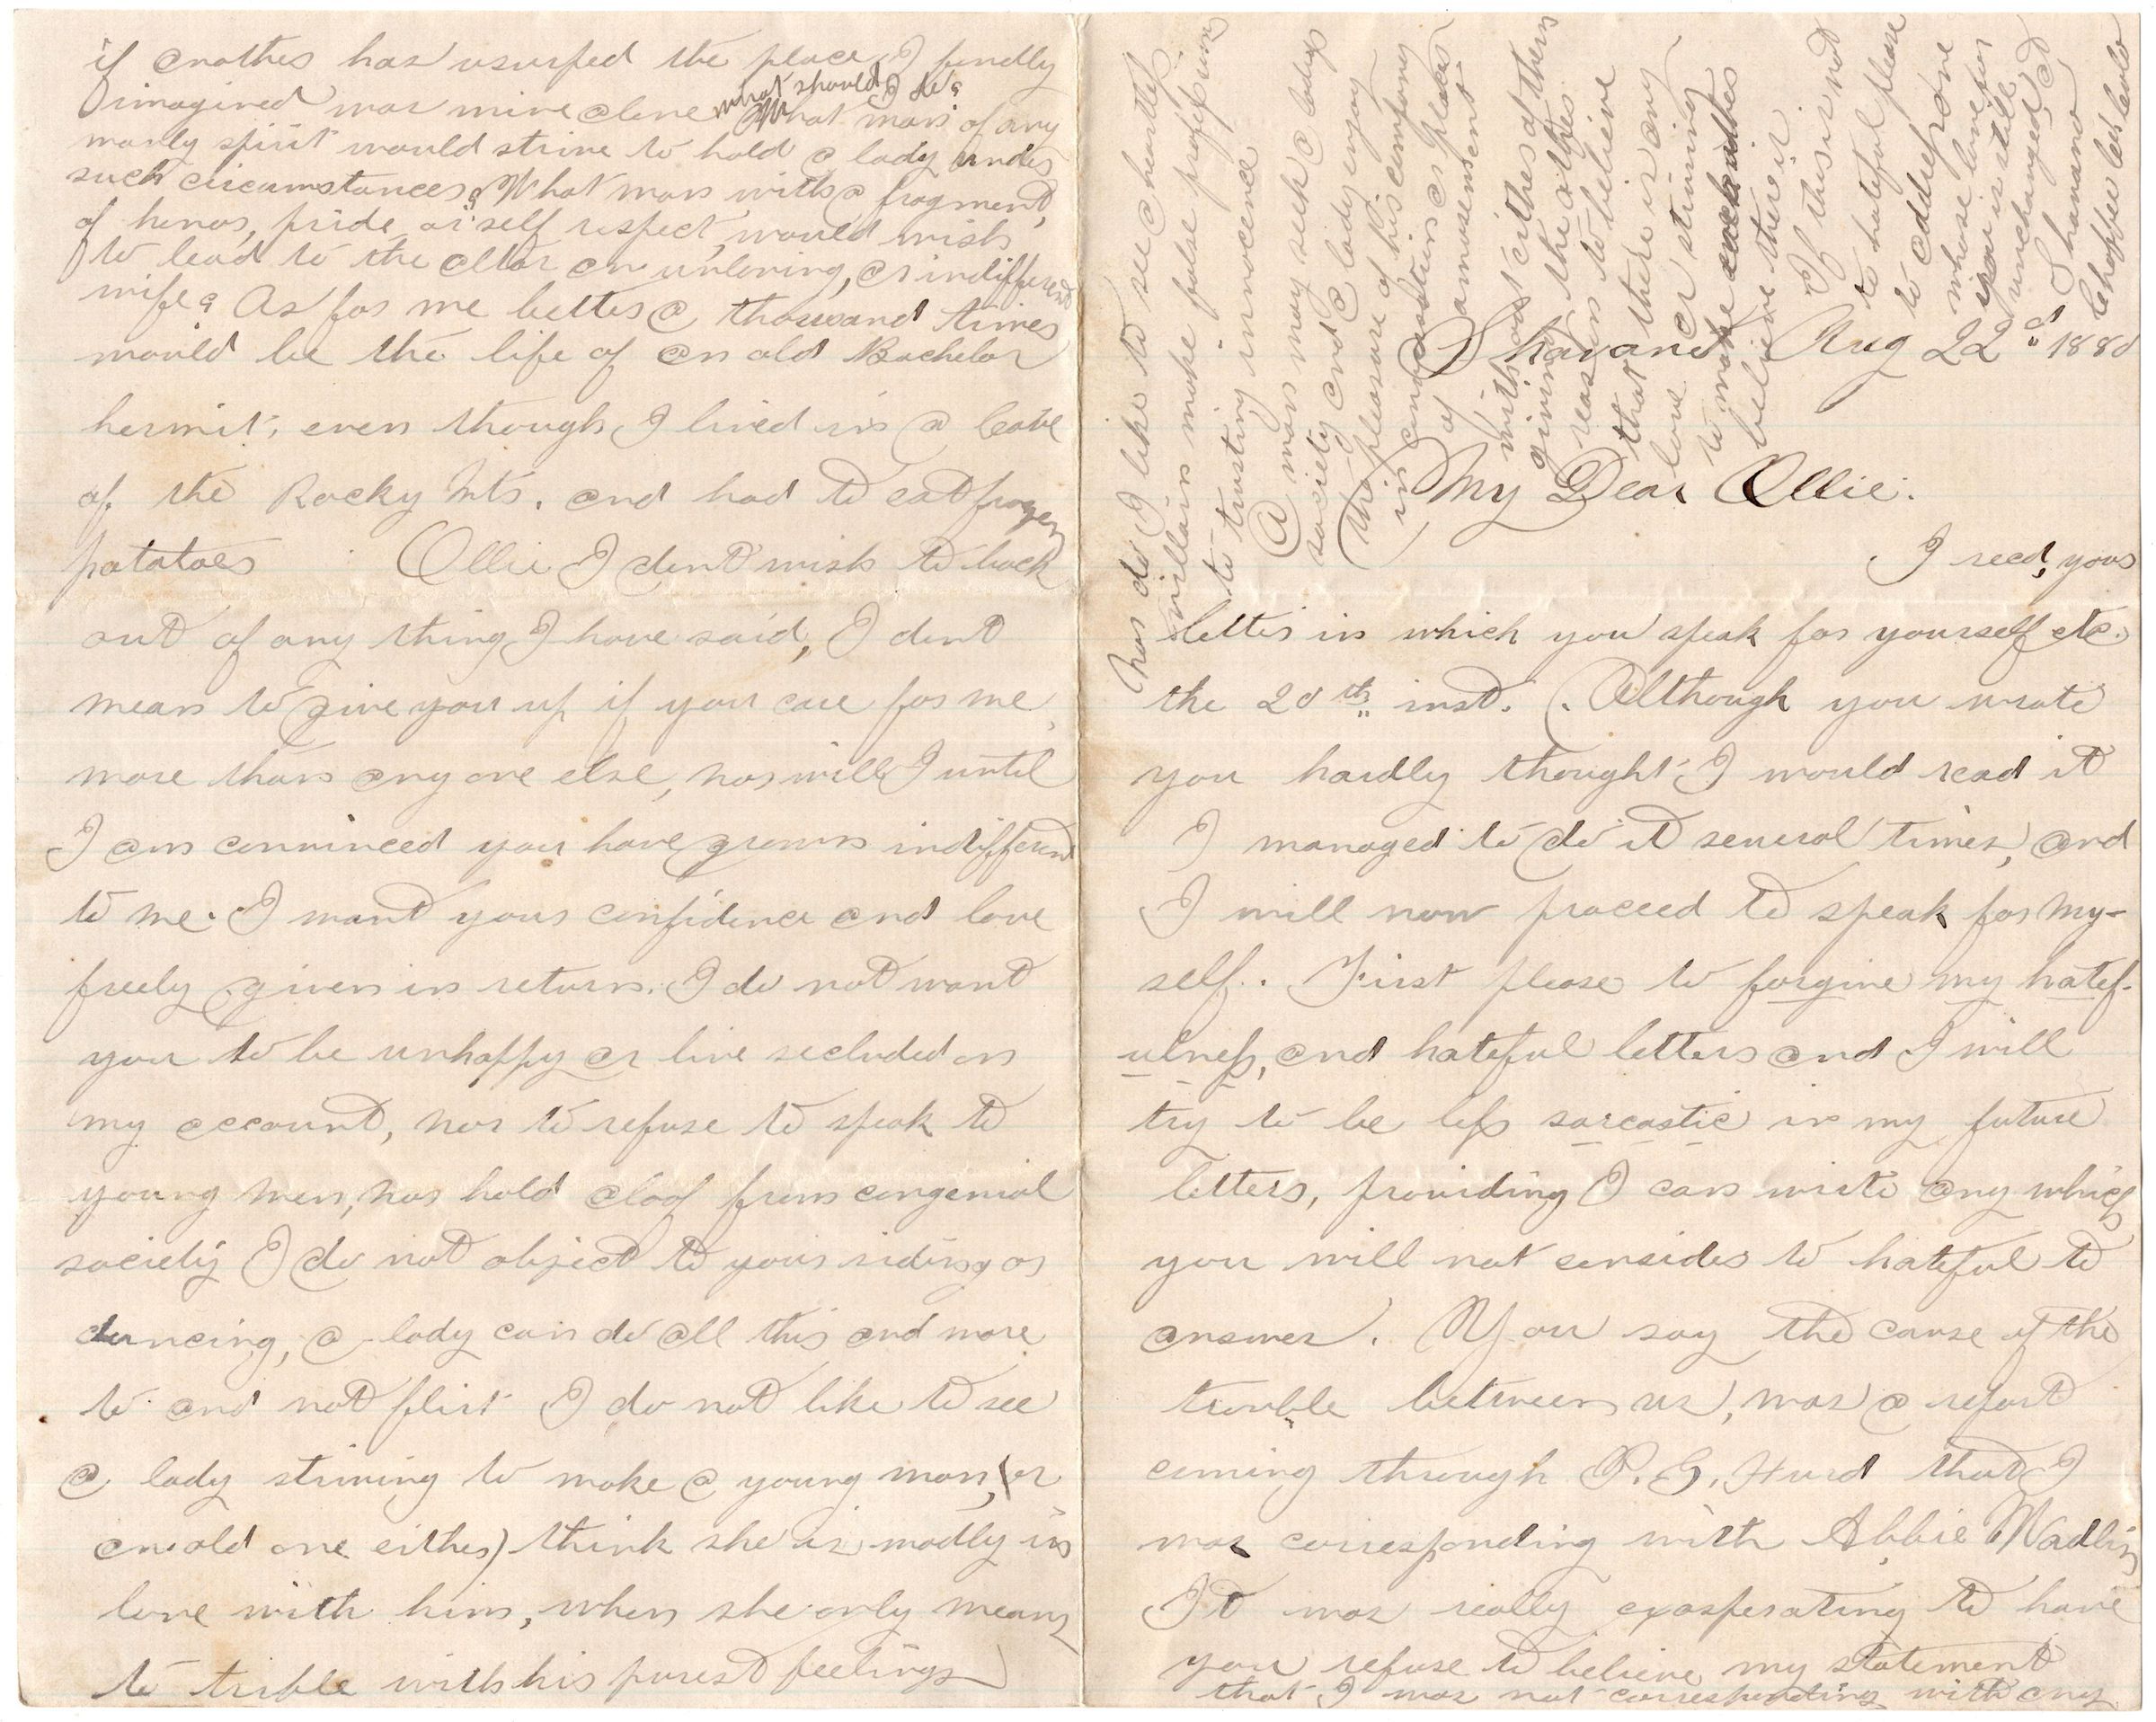 if another has usurped the place I fondly
imagined was mine alone what should I do?
What man of any
manly spirit would strive to hold a lady under
such circumstances? What man with a fragment,
of honor, pride or self respect, would wish
to lead to the altar an unloving, or indifferent
wife? As for me better a thousand times
would be the life of an old Bachelor
hermit, even though I lived in a Cave
of the Rocky Mts. and had to eat frozen
potatoes Ollie I dont wish to back
out of any thing I have said, I dont
mean to give you up if you care for me
more than any one else, nor will I until
I am convinced you have grown indifferent
to me. I want your confidence and love
freely given in return. I do not want
you to be unhappy or live secluded on
my account, nor to refuse to speak to
young men, nor hold aloof from congenial
society I do not object to your riding or
dancing, a lady can do all this and more
to and not flirt I do not like to see
a lady striving to make a young man, (or
an old one either) think she is madly in
love with him, when she only means
to trifle with his purest feelings
Shavano Aug 22d 1880
My Dear Ollie.
I recd, your
letter in which you speak for yourself etc.
the 20th inst. Although you wrote
you hardly thought I would read it
I managed to do it several times, and
I will now proceed to speak for my-
self. First please to forgive my hatef-
ulness, and hateful letters and I will
try to be less sarcastic in my future
letters, providing I can write any which
you will not consider to hateful to
answer. You say the cause of the
trouble between us, was a report
coming through P. G. Hurd that I
was corresponding with Abbie Wadlin
It was really exasperating to have
you refuse to believe my statement
that I was not corresponding with any
Nor do I like to see a heartless
villain make false professions
to trusting innocence
A man may seek a ladys
society and a lady enjoy
the pleasure of his company
in conversation or pleasant
of amusement
without either of them
giving the other
reason to believe
that there is any
love or striving
to make each other
believe there is
If this is not
to hateful please
to address one
whose love for
you is still
unchanged, at
Shavano
Chaffee Co. Colo